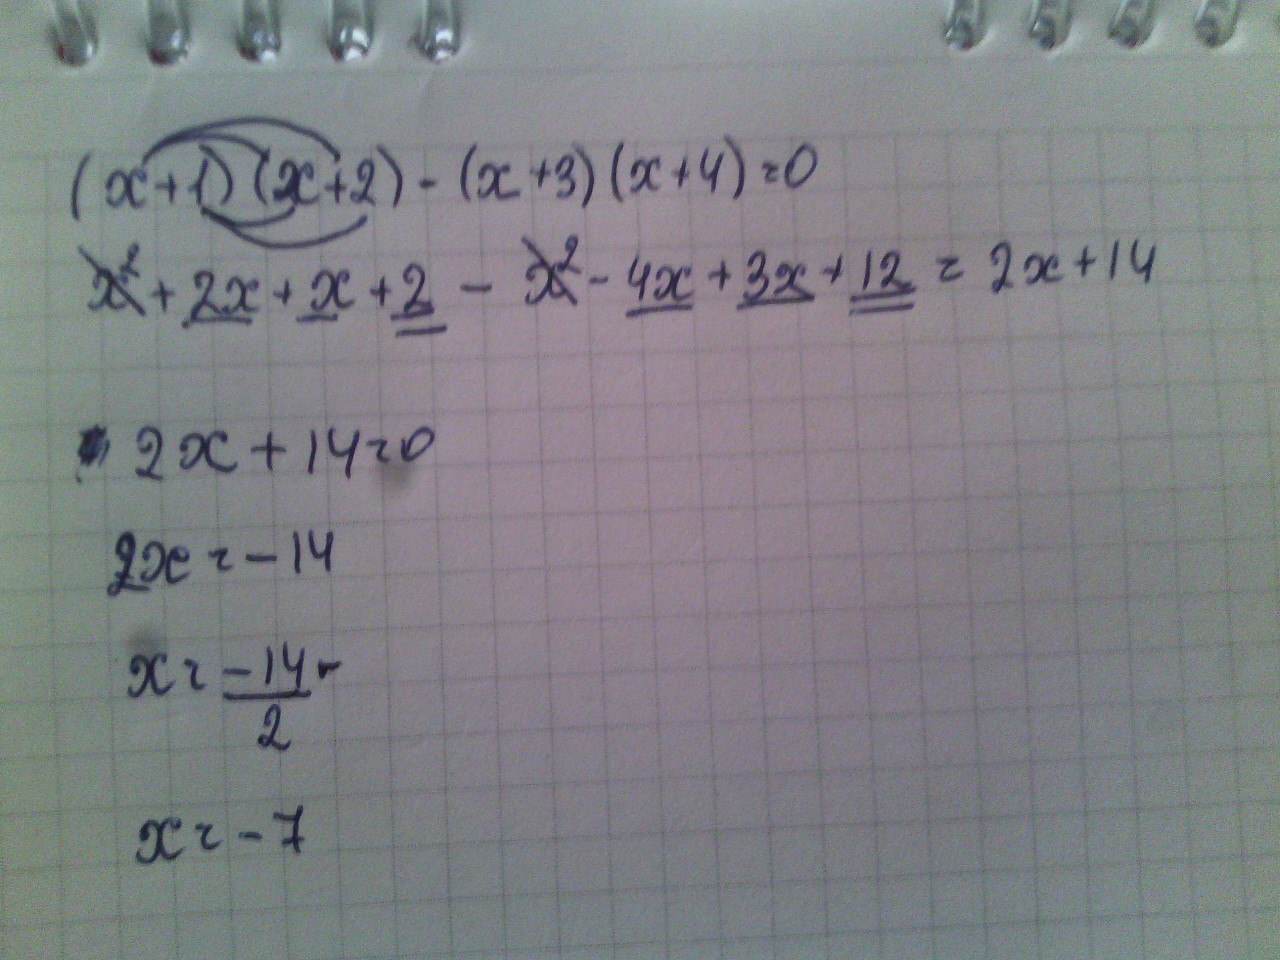 (x+1)(x+2)-(x+3)(x+4)=0
x²+2x+x+2-x²-4x+3x+12=2x+14
2x+14=0
2x=-14
x=-14/2
x=-7